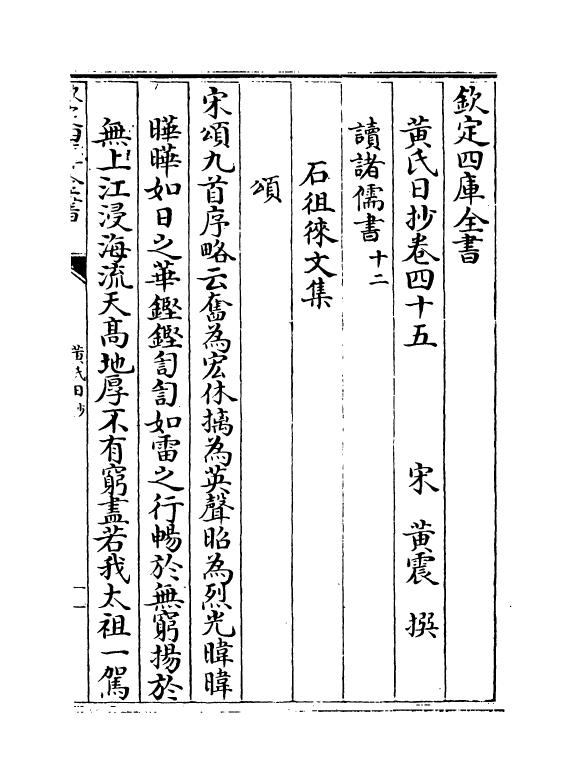 欽定四庫全書
黃氏日抄卷四十五　宋　黃震　撰
讀諸儒書十二
石徂徠文集
頌
宋頌九首序略云奮為宏休摛為英聲昭為烈光暐暐
曄曄如日之華鏗鏗訇訇如雷之行暢於無窮揚於
無上江浸海流天高地厚不有窮盡若我太祖一駕
黃氏日抄
一